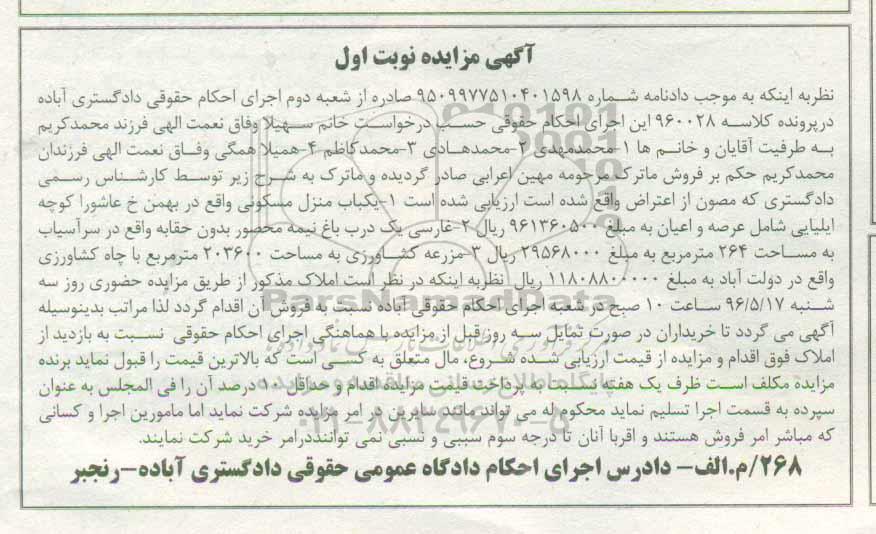 آگهی مزایده نوبت اول
نظربه اینکه به موجب دادنامه شماره ۹۵۰۹۹۷۷۵۱۰۴۰۱۵۹۸ صادره از شعبه دوم اجرای احکام حقوقی دادگستری آباده
درپرونده کلاسه ۹۶۰۰۲۸ این اجرای احکام حقوقی حسب درخواست خانم سهیلا وفاق نعمت الهی فرزند محمدکریم
به طرفیت آقایان و خانم ها ۱-محمدمهدی ۲-محمدهادی ۳-محمدکاظم ۴-همیلا همگی وفاق نعمت الهی فرزندان
محمدکریم حکم بر فروش ماترک مرحومه مهین اعرابی صادر گردیده و ماترک به شرح زیر توسط کارشناس رسمی
دادگستری که مصون از اعتراض واقع شده است ارزیابی شده است ۱-یکباب منزل مسکونی واقع در بهمن خ عاشورا کوچه
ایلیایی شامل عرصه و اعیان به مبلغ ۹۶۱۳۶۰۵۰۰ ریال ۲-غارسی یک درب باغ نیمه محصور بدون حقابه واقع در سرآسیاب
به مساحت ۲۶۴ مترمربع به مبلغ ۲۹۵۶۸۰۰۰ ریال ۳-مزرعه کشاورزی به مساحت ۲۰۳۶۰۰ مترمربع با چاه کشاورزی
واقع در دولت آباد به مبلغ ۱۱۸۰۸۸۰۰۰۰۰ ریال نظربه اینکه در نظر است املاک مذکور از طریق مزایده حضوری روز سه
شنبه ۹۶/۵/۱۷ ساعت ۱۰ صبح در شعبه اجرای احکام حقوقی آباده نسبت به فروش آن اقدام گردد لذا مراتب بدینوسیله
آگهی می گردد تا خریداران در صورت تمایل سه روز قبل از مزایده با هماهنگی اجرای احکام حقوقی نسبت به بازدید از
املاک فوق اقدام و مزایده از قیمت ارزیابی شده شروع، مال متعلق به کسی است که بالاترین قیمت را قبول نماید برنده
مزایده مکلف است ظرف یک هفته نسبت به پرداخت قیمت مزایده اقدام و حداقل ۱۰ درصد آن را فی المجلس به عنوان
سپرده به قسمت اجرا تسلیم نماید محکوم له می تواند مانند سایرین در امر مزایده شرکت نماید اما مامورین اجرا و کسانی
که مباشر امر فروش هستند و اقربا آنان تا درجه سوم سببی و نسبی نمی تواننددرامر خرید شرکت نمایند.
۲۶۸/م.الف- دادرس اجرای احکام دادگاه عمومی حقوقی دادگستری آباده-رنجبر
ParsNamadData
۰۲۱-۸۸۳۴۹۶۷۰-۵